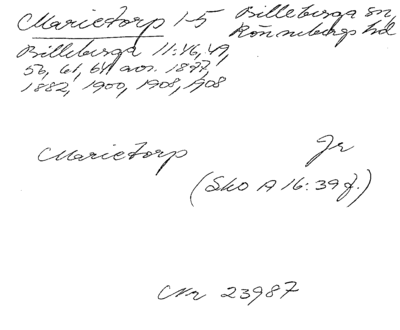 Marietorp 1-5 Billeberga sn,
Rönnebergs hd
Billeberga 11:46, 49,
56, 61, 64 avs. 1877,
1882, 1900, 1908, 1908
Marietorp Jr
(Sko A 16: 39 f.)
Nr 23987